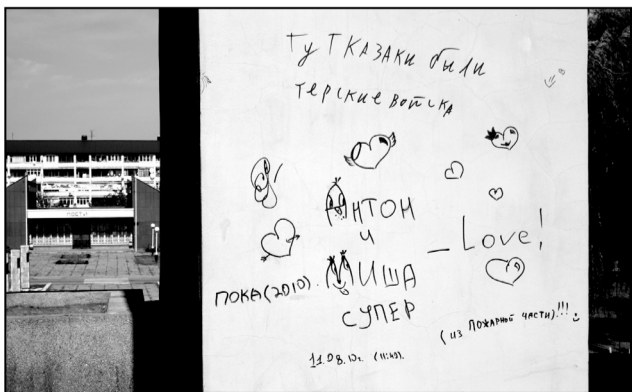 Тут КАЗАКИ были
терские войска
Антон
и
Миша
— Love!
ПОКА(2010).
СУПЕР
(из ПОЖАРНОЙ ЧАСТИ)!!!
11.08.10г.